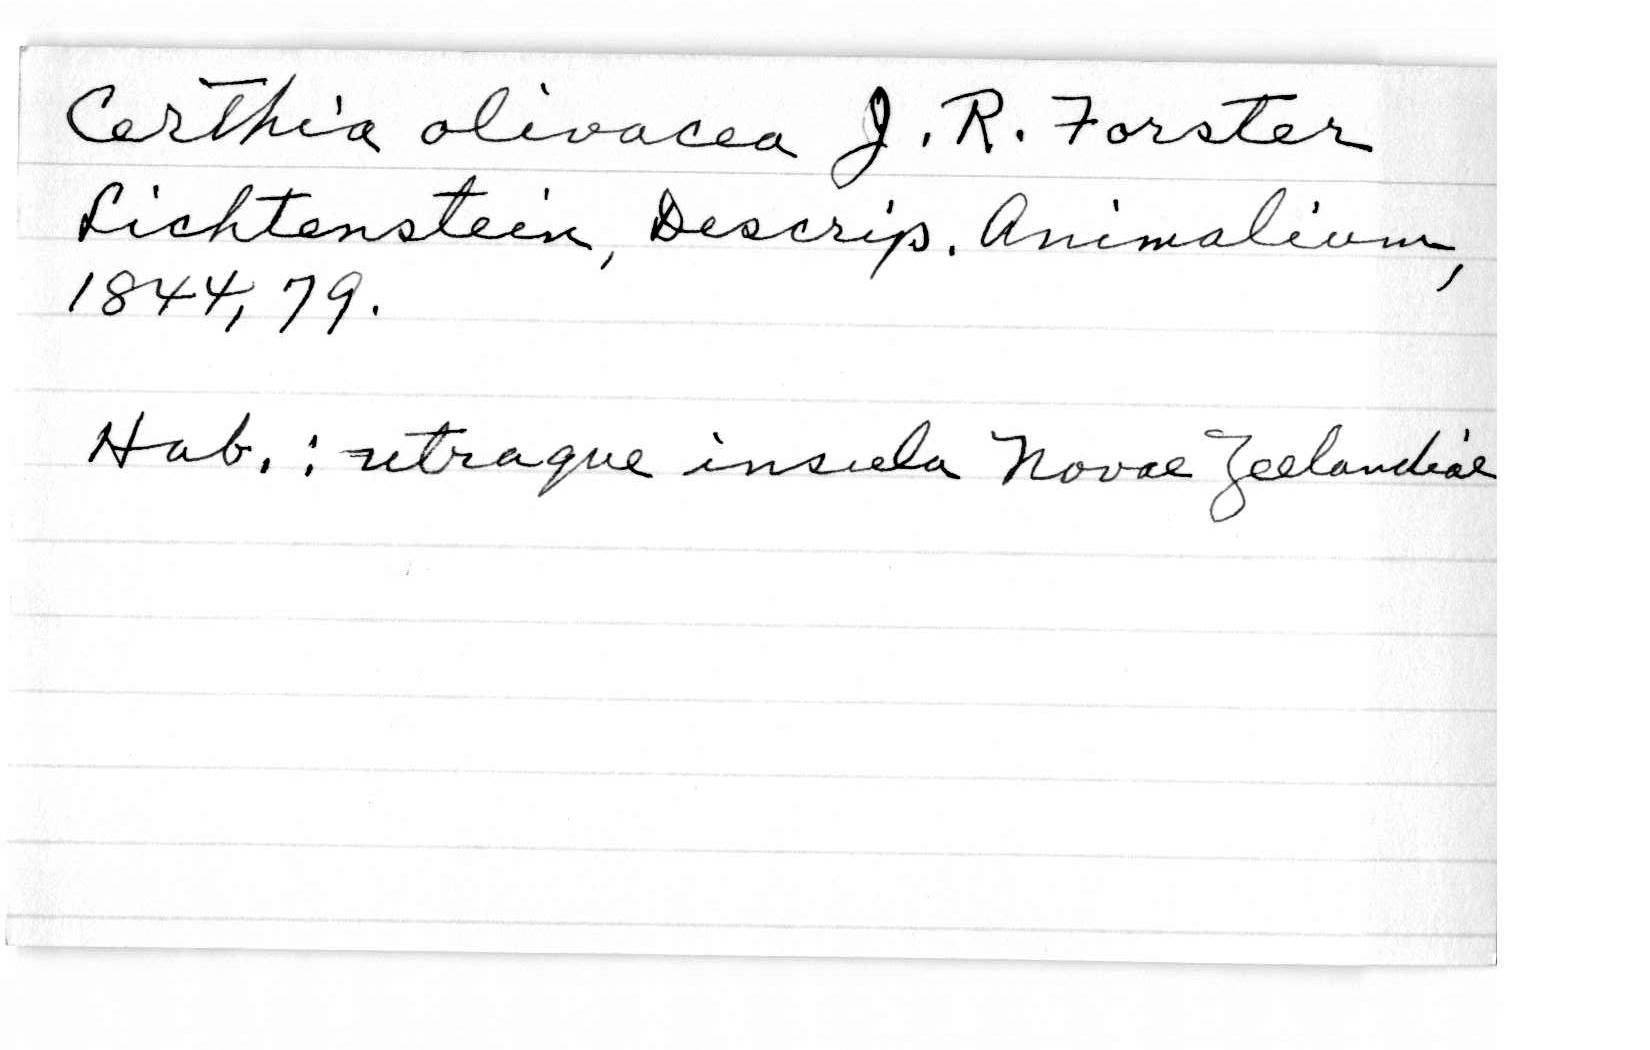 Certhia olivacea J. R. Forster
Lichtenstein, Descrip. Animalium,
1844, 79.
Hab. : utraque insula Novae Zeelandiae